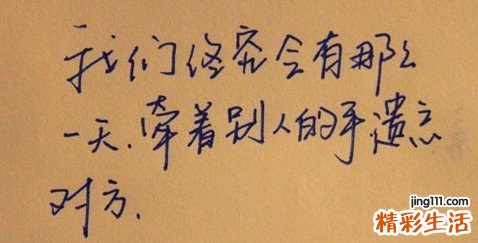 我们终究会有那么
一天.牵着别人的手遗忘
对方.
jing111.com
精彩生活